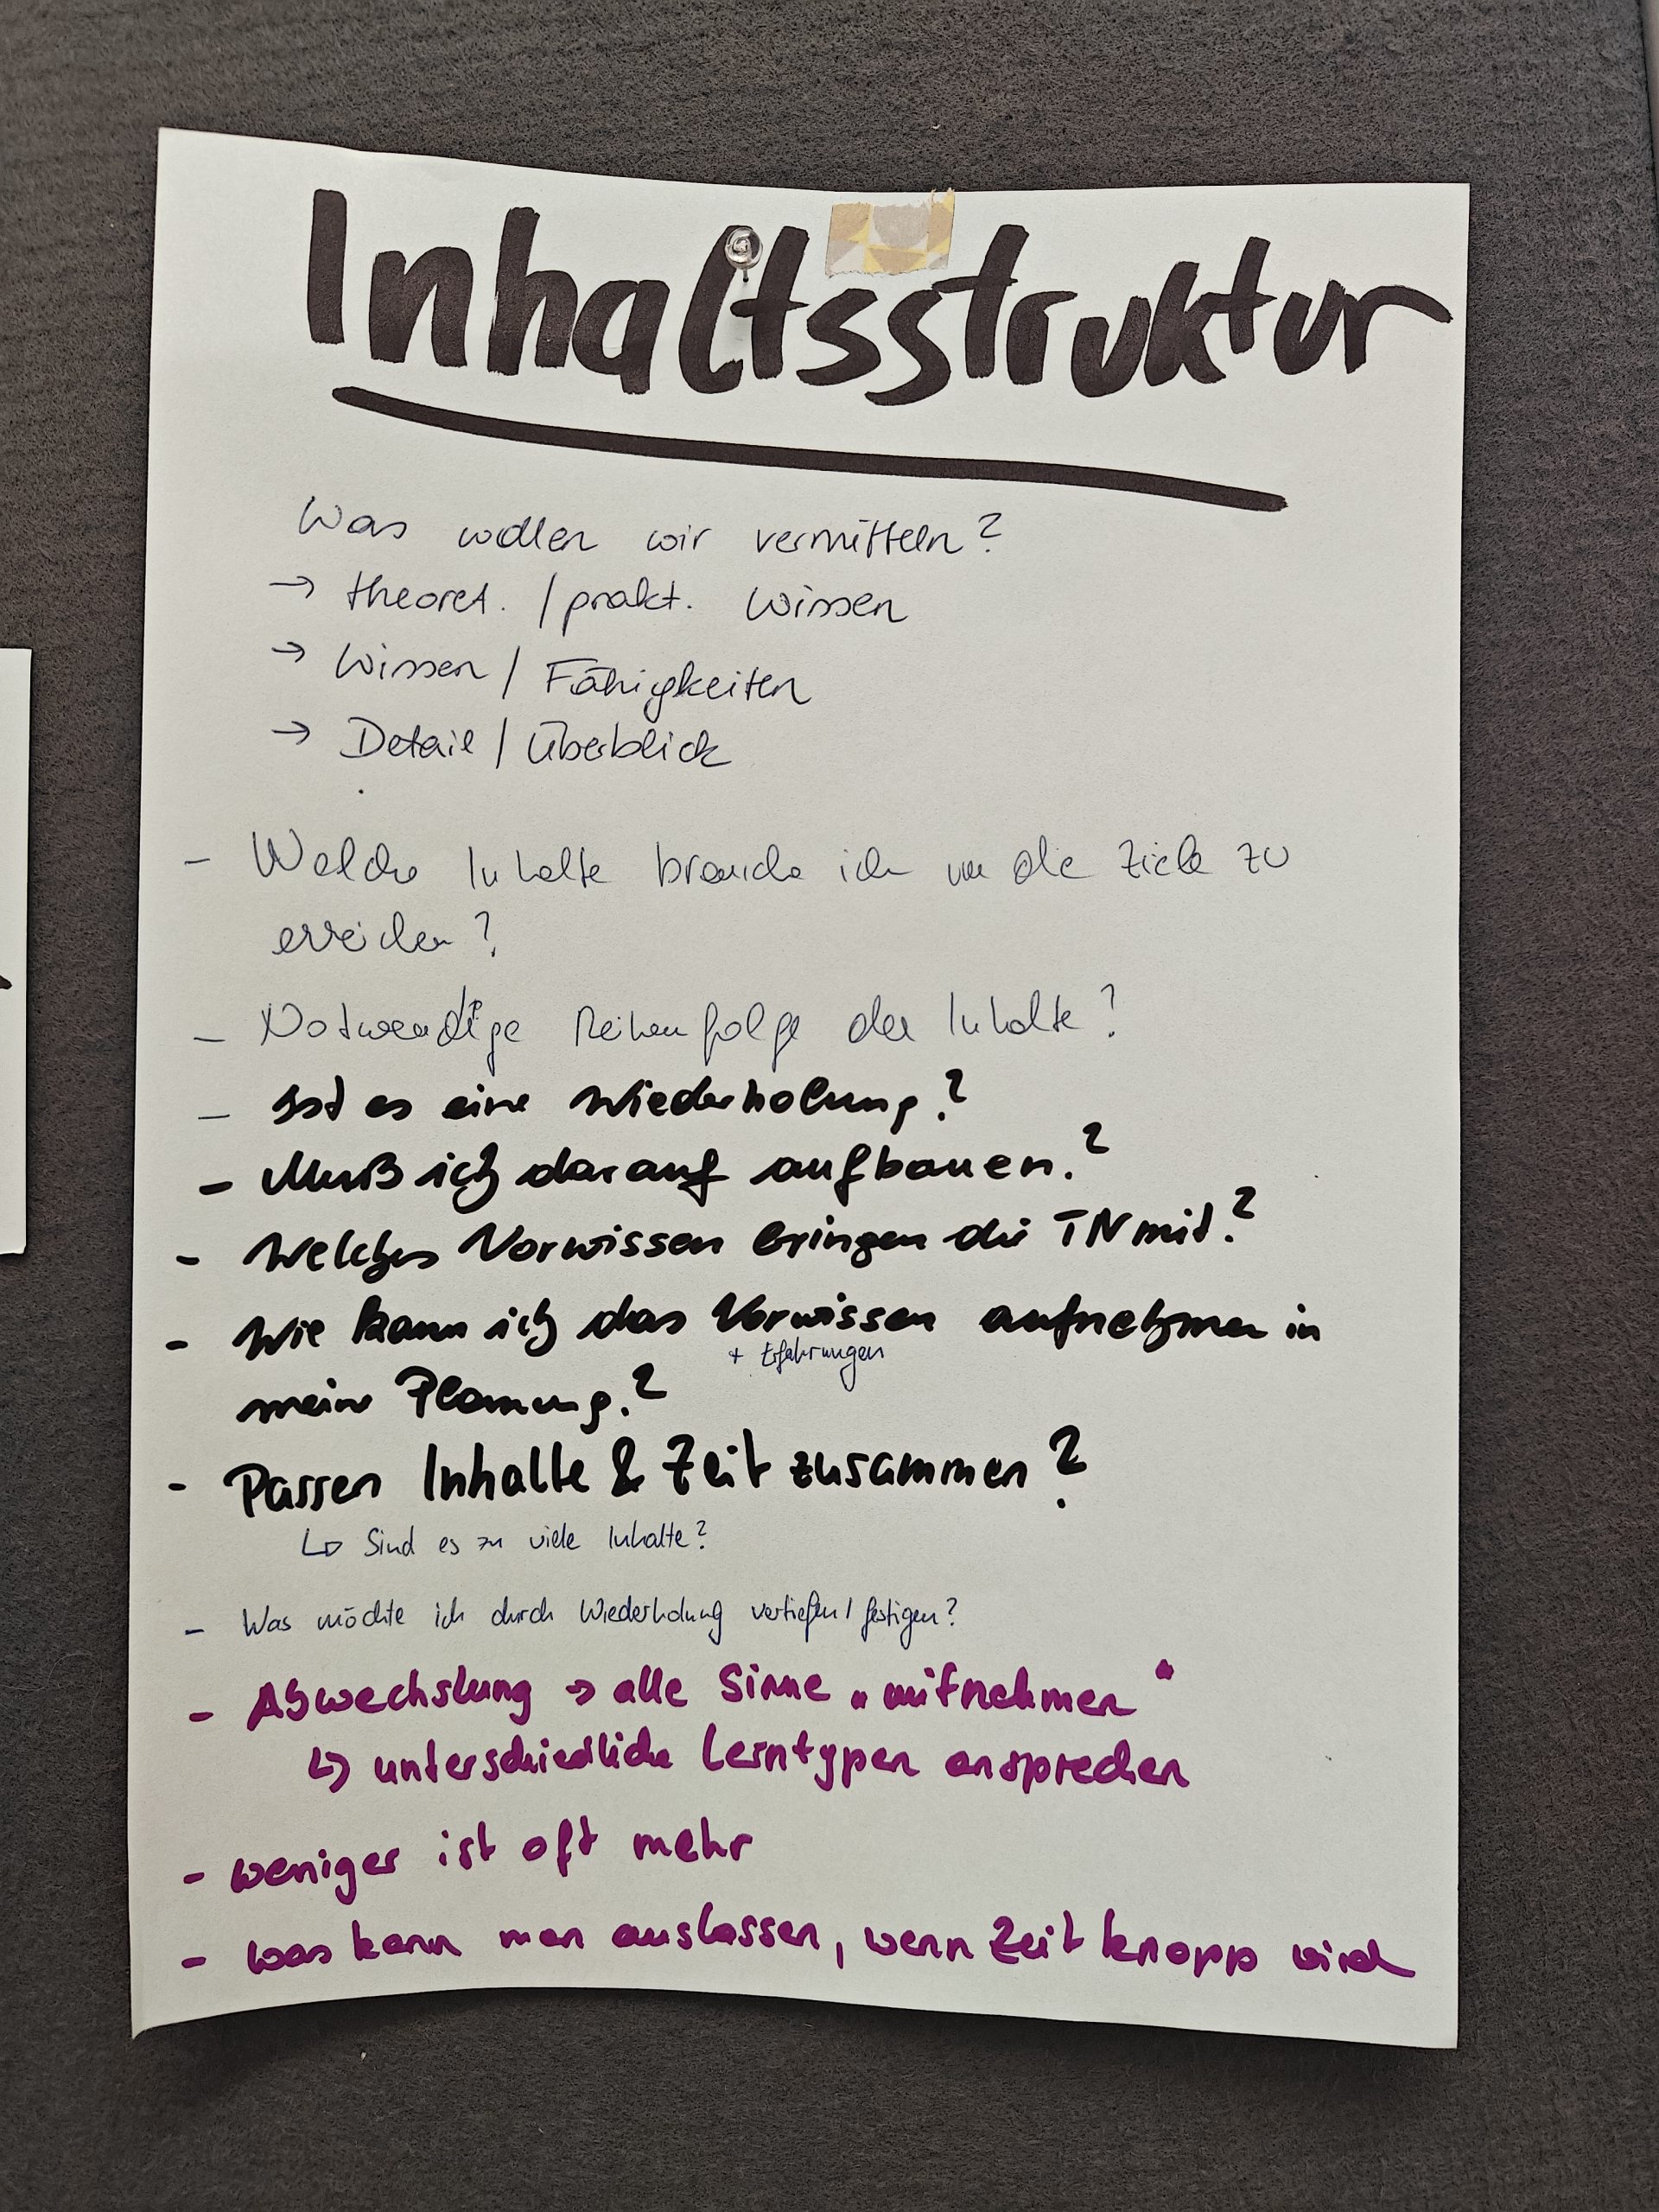 Inhaltsstruktur
Was wollen wir vermitteln?
→ theoret. / prakt. Wissen
→ Wissen / Fähigkeiten
→ Detail / Überblick
- Welche Inhalte brauche ich um die Ziele zu
erreichen?
- Notwendige Reihenfolge der Inhalte?
- Ist es eine Wiederholung?
- Muß ich darauf aufbauen?
- Welches Vorwissen bringen die TN mit?
- Wie kann ich das Vorwissen aufnehmen in
+ Erfahrungen
meine Planung?
- Passen Inhalte & Zeit zusammen?
↳ Sind es zu viele Inhalte?
- Was möchte ich durch Wiederholung vertiefen / festigen?
- Abwechslung → alle Sinne „mitnehmen“
↳ unterschiedliche Lerntypen ansprechen
- weniger ist oft mehr
- was kann man auslassen, wenn Zeit knapp wird